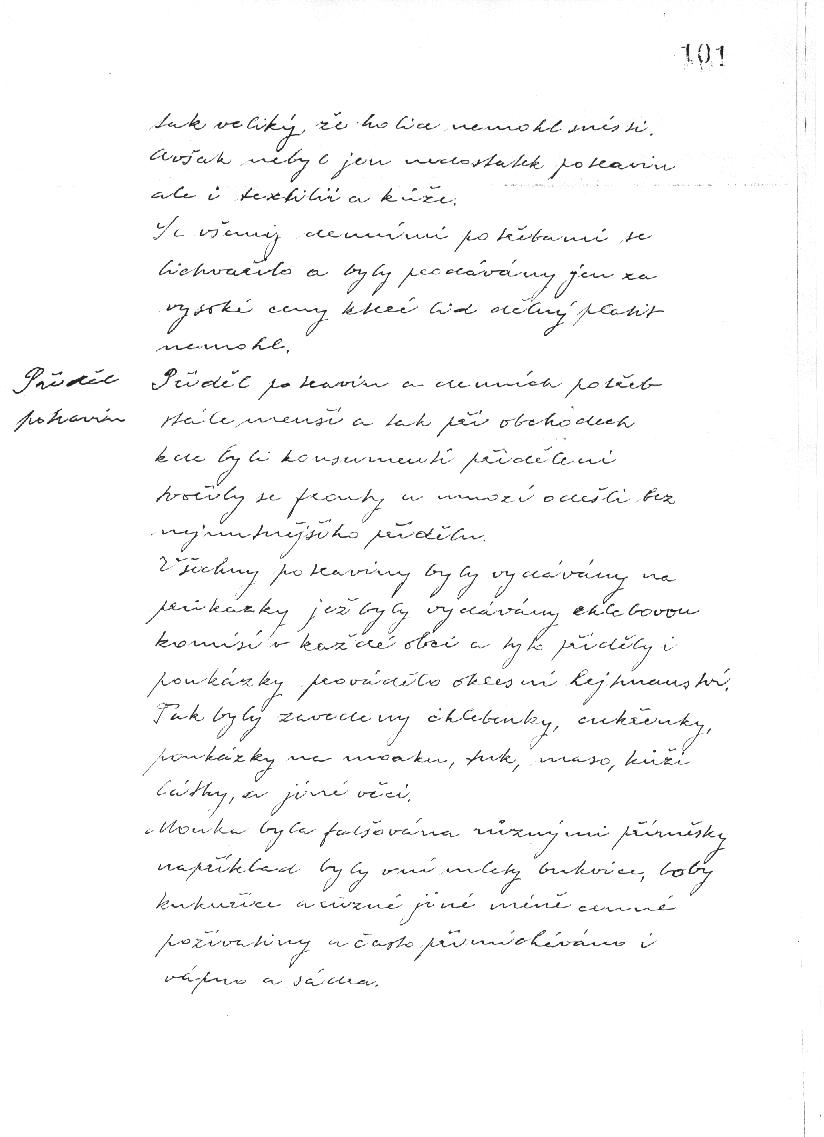 101
tak veliký, že holid nemohl snésti.
Avšak nebyl jen nedostatek potravin
ale i textilií a kůže.
Se všemi denními potřebami se
lichvařilo a byly prodávány jen za
vysoké ceny které lid dělný platit
nemohl.
Příděl
potravin
Příděl potravin a denních potřeb
stále menší a tak při obchodech
kde byli konsumenti přiděleni
tvořily se fronty a mnozí odešli bez
nejnutnějšího přídělu.
Všechny potraviny byly vydávány na
průkazky jež byly vydávány chlebovou
komisí v každé obci a tyto příděly i
poukázky provádělo okresní hejtmanství.
Tak byly zavedeny chlebenky, cukřenky,
poukázky na mouku, tuk, maso, kůži
látky, a jiné věci.
Mouka byla falšována různými příměsky
například byly v ní mlety bukvice, boby
kukuřice a různé jiné méně cenné
poživatiny a často přimícháváno i
vápno a sádra.